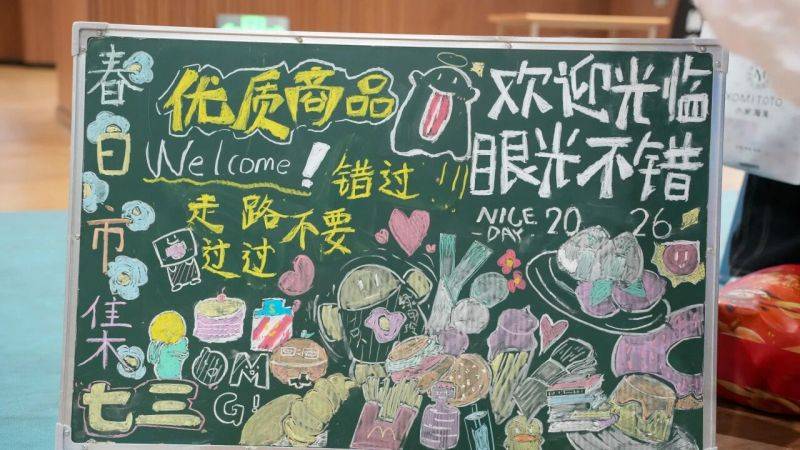 春日市集
七三
优质商品
Welcome!
错过!!!
走路不要
过过
欢迎光临
眼光不错
NICE 2026
-DAY
OMG!
KOMITOTO